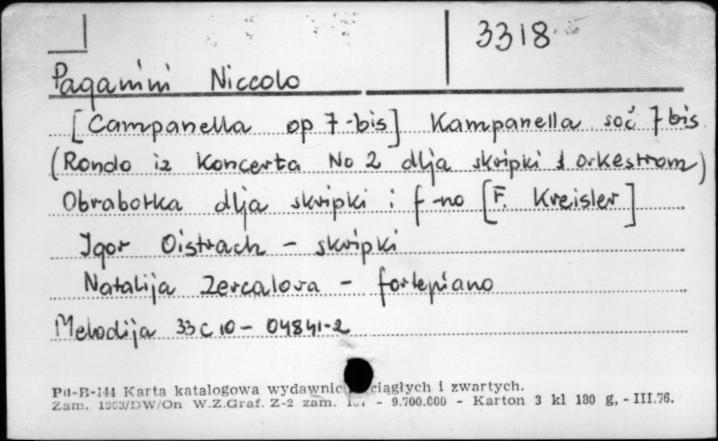 3318
Paganini Niccolo
[Campanella op 7-bis] Kampanella soč 7 bis
(Rondo iz Koncerta No 2 dlja skripki s orkestrom)
Obrabotka dlja skripki i f-no [F. Kreisler]
Igor Oistrach - skripki
Natalija Zercalova - fortepiano
Melodija 33 C 10 - 04841-2
Pu-B-144 Karta katalogowa wydawnic ciągłych i zwartych.
Zam. 1363/DW/On W.Z.Graf. Z-2 zam. - 9.700.000 - Karton 3 kl 180 g, - III.76.